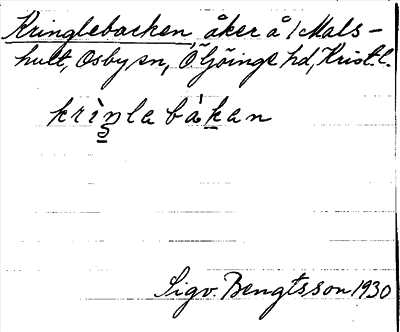 Kringlebacken, åker å 1 Mals-
hult, Osby sn, Ö Göinge hd, Krist. l.
krìŋlabákan
Sigv. Bengtsson 1930